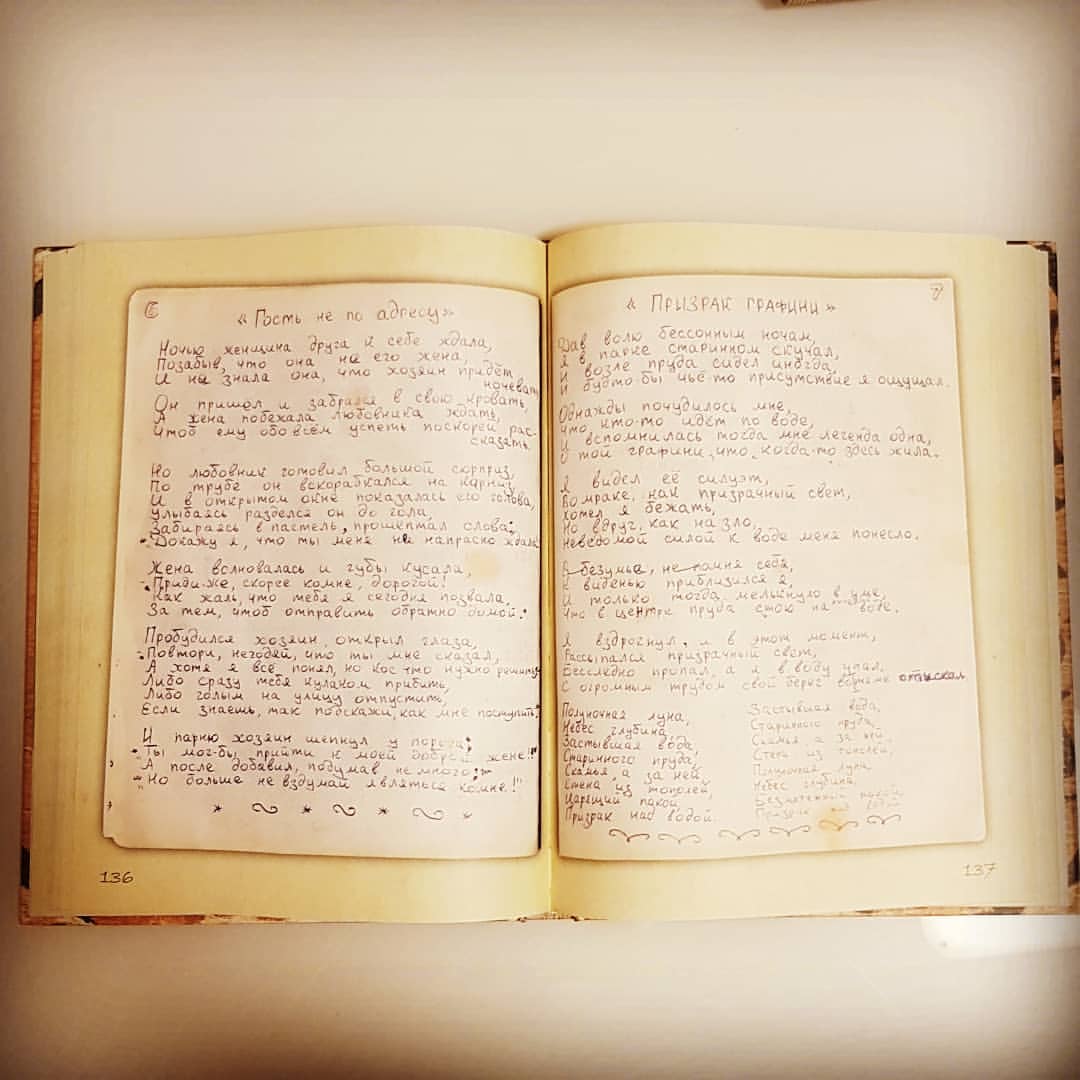 6
«Гость не по адресу»
Ночью женщина друга к себе ждала,
Позабыв, что она не его жена,
И не знала она, что хозяин придёт
ночевать
Он пришёл и забрался в свою кровать,
А жена побежала любовника ждать,
Чтоб ему обо всём успеть поскорей рас-
сказать.
Но любовник готовил большой сюрприз,
По трубе он вскарабкался на карниз,
И в открытом окне показалась его голова,
Улыбаясь разделся он до гола,
Забираясь в пастель, прошептал слова:
"Докажу я, что ты меня не напрасно ждала"
Жена волновалась и губы кусала,
- Приди-же, скорее комне, дорогой!
Как жаль, что тебя я сегодня позвала,
За тем, чтоб отправить обратно домой."
Пробудился хозяин, открыл глаза,
"Повтори, негодяй, что ты мне сказал,
А хотя я всё понял, но кое что нужно решить
Либо сразу тебя кулаком прибить,
Либо голым на улицу отпустить,
Если знаешь, так подскажи, как мне поступить."
И парню хозяин шепнул у порога:
"Ты мог-бы, прийти к моей доброй жене!"
А после добавил, подумав не много:
"Но больше не вздумай являться комне!"
136
7
«ПРИЗРАК ГРАФИНИ»
Дав волю бессонным ночам,
Я в парке старинном скучал,
И возле пруда сидел иногда,
И будто-бы чьё-то присутствие я ощущал.
Однажды почудилось мне,
Что кто-то идёт по воде,
И вспомнилась тогда мне легенда одна,
О той графини, что когда-то здесь жила.
Я видел её силуэт,
Во мраке, как призрачный свет,
Хотел я бежать,
Но вдруг, как на зло,
Неведомой силой к воде меня понесло.
В безумье, не помня себя,
К виденью приблизился я,
И только тогда мелькнуло в уме,
Что в центре пруда стою на воде.
Я вздрогнул, и в этот момент,
Рассыпался призрачный свет,
Бесследно пропал, а я в воду упал.
С огромным трудом свой берег отыскал
Полуночная луна,
Небес глубина,
Застывшая вода,
Старинного пруда,
Скамья, а за ней,
Стена из тополей,
Царящий покой,
Призрак над водой.
Застывшая вода,
Старинного пруда,
Скамья, а за ней,
Стена из тополей,
Полуночная луна
Небес глубина,
покой
Призрак над водой
137